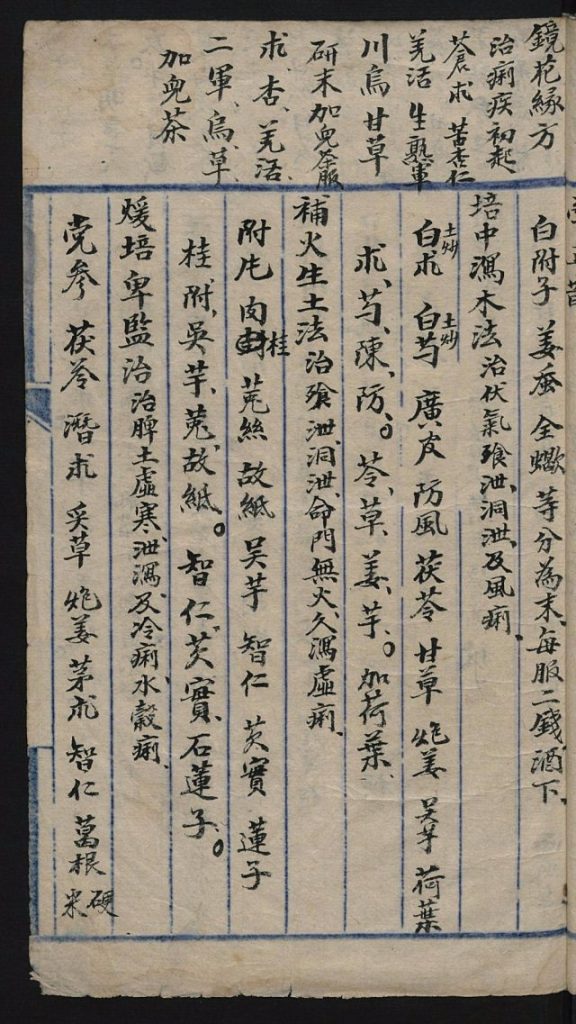 鏡花緣方
治痢疾初起
蒼朮 苦杏仁
羌活 生熟軍
川烏 甘草
研末加兒茶服
朮、杏、羌活、
二軍、烏、草、
加兒茶
白附子 姜蚕 全蠍 等分為末、每服二錢、酒下、
培中瀉木法 治伏氣飱泄、洞泄、及風痢、
土炒 土炒
白朮 白芍 廣皮 防風 茯苓 甘草 炮姜 吴芋 荷葉
朮、芍、陳、防。苓、草、姜、芋。加荷葉
補火生土法 治飱泄、洞泄、命門無火、久瀉虛痢、
附片 肉桂 菟絲 故紙 吴芋 智仁 芡實 蓮子
桂、附、吳芋、菟、故紙。智仁、芡實、石蓮子。
煖培卑監治 治脾土虛寒、泄瀉、及冷痢、水穀痢、
党參 茯苓 潛朮 炙草 炮姜 茅朮 智仁 葛根 硬米